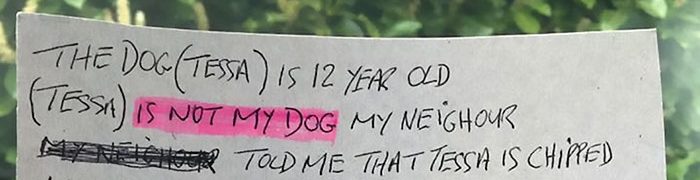 THE DOG (TESSA) IS 12 YEAR OLD
(TESSA) IS NOT MY DOG MY NEiGHOUR
MY NEIGHOUR TOLD ME THAT TESSA IS CHiPPED